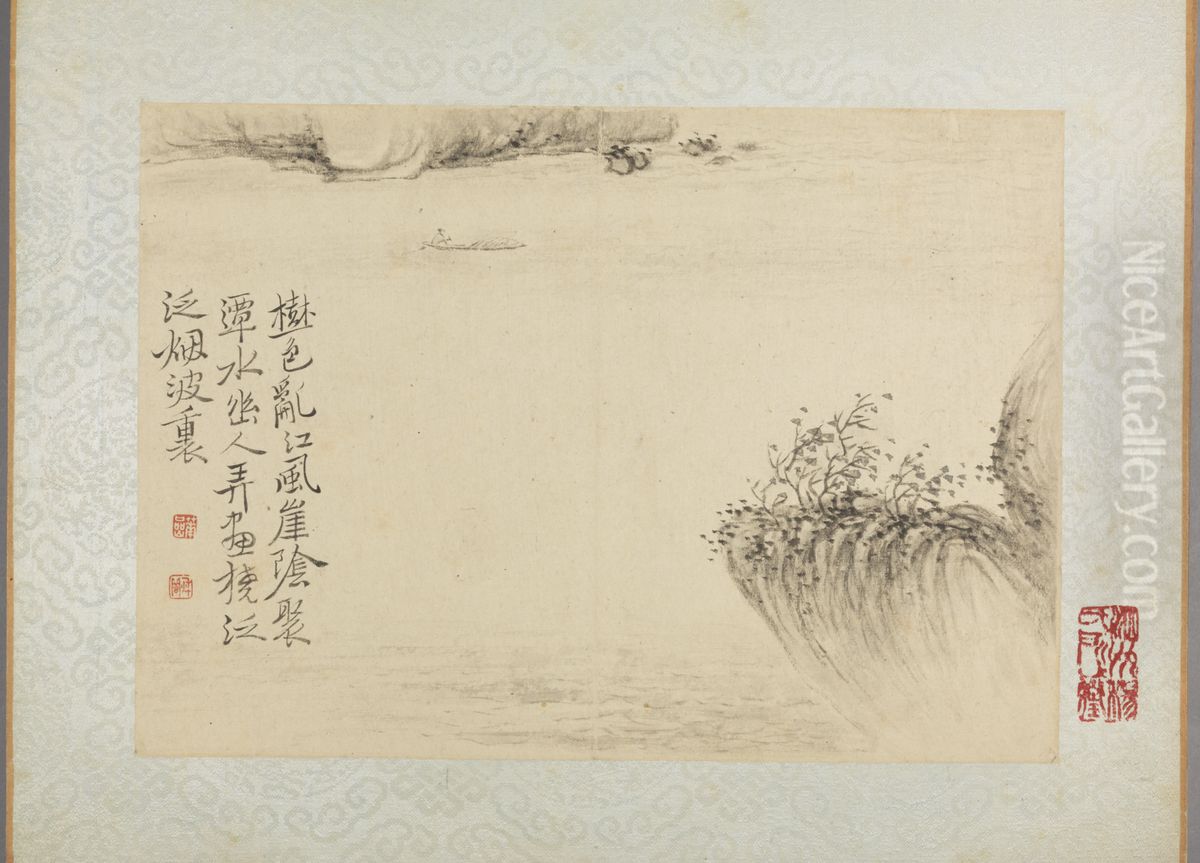 樹色亂江風崖陰聚
潭水幽人弄畫橈泛
泛烟波裏
NiceArtGallery.com